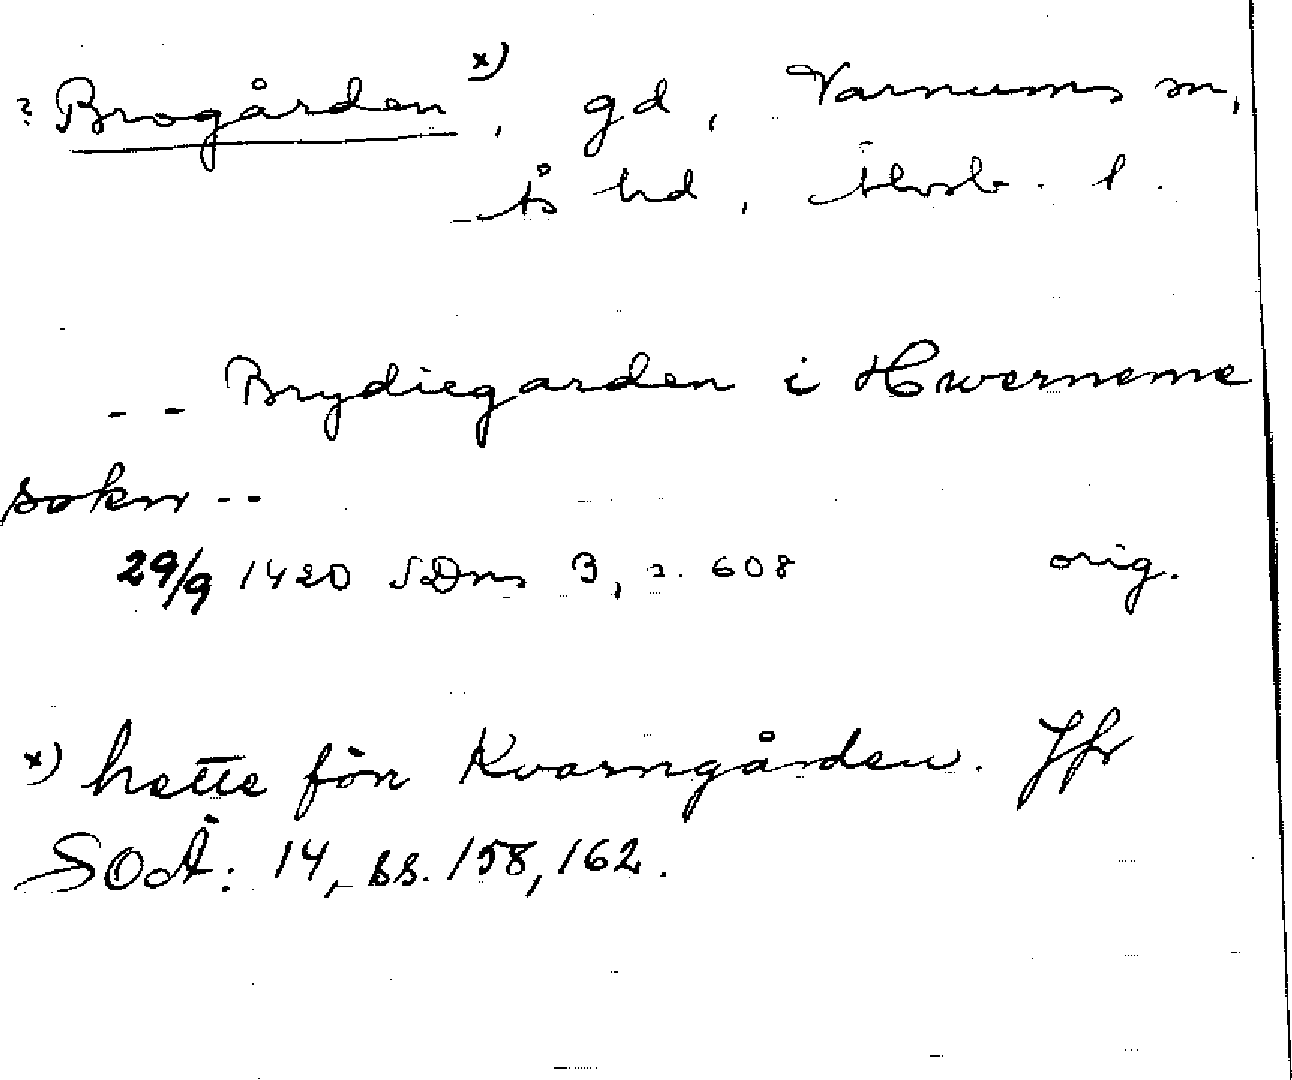 ? Brogården x), gd, Varnums sn,
Ås hd, Älvsb. l.
-- Brydiegarden i Hwerneme
sokn --
29/9 1420 SDns 3, s. 608 orig.
x) hette förr Kvarngården. Jfr
SOÄ: 14, ss. 158, 162.